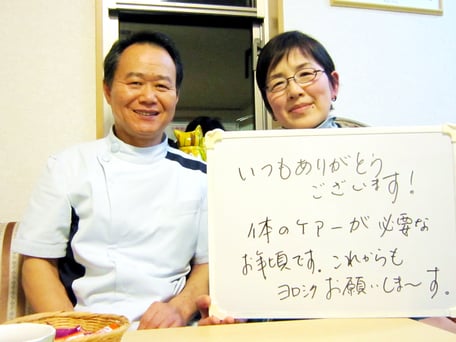 いつもありがとう
ございます!
体のケアーが必要な
お年頃です。これからも
ヨロシクお願いしま〜す。